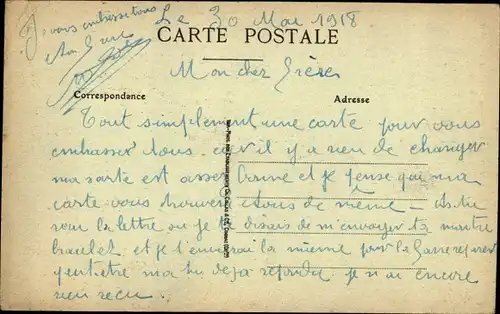 Je vous embrasse tous
Le 30 Mai 1918
CARTE POSTALE
Mon cher Frère
Correspondance
Adresse
Tout simplement une carte pour vous
embrasser tous. qu'il y a rien de changer
ma santé est assez bonne et je pense que ma
carte vous trouvera tous de même - as tu
recu la lettre ou je te disais de m'envoyer ta montre
bracelet et je t'enverrai la mienne pour la faire reparer
peut etre ma tu deja repondu je n'ai encore
rien recu.